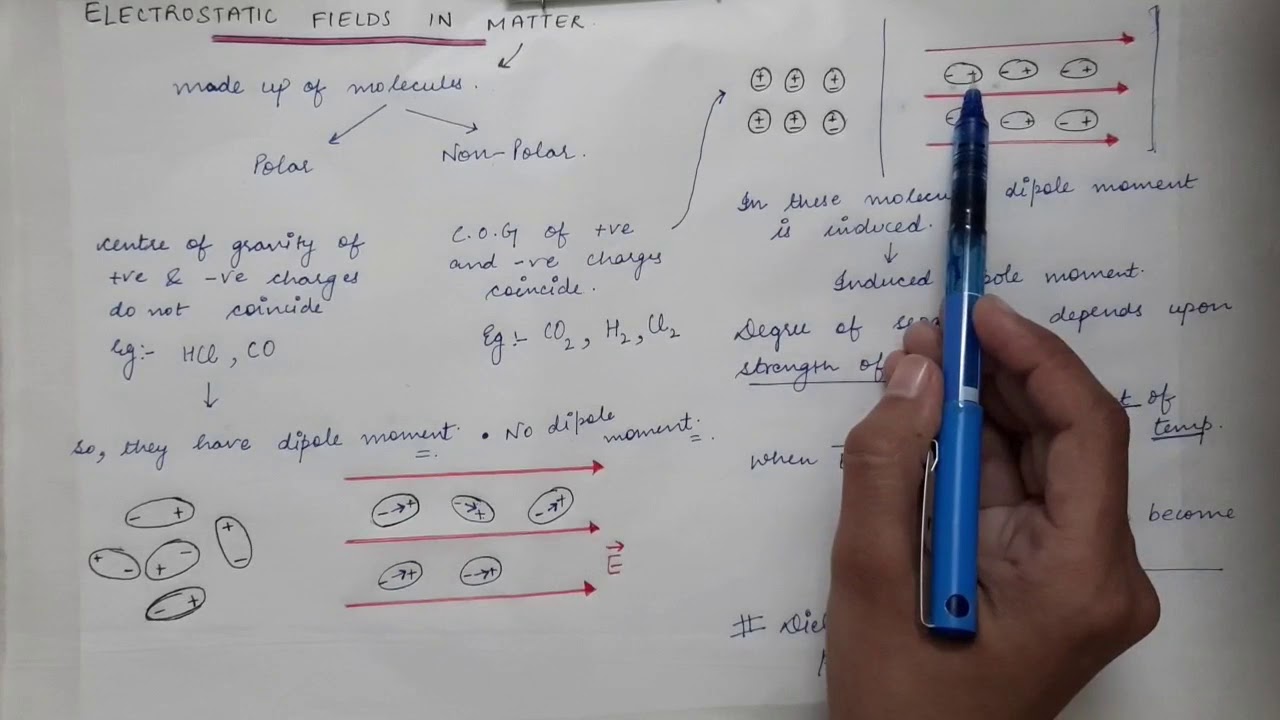 ELECTROSTATIC FIELDS IN MATTER.
made up of molecules.
Polar
Non-Polar.
centre of gravity of
+ve & -ve charges
do not coincide
Eg:- HCl, CO
so, they have dipole moment.
C.O.G of +ve
and -ve charges
coincide.
Eg:- CO2, H2, Cl2
• No dipole
moment.
- +
+ -
+ -
+ -
- +
- + - + - +
- + - +
E
+ + +
- - -
+ + +
- - -
- + - + - +
- - + - +
In these dipole moment
is induced.
Induced moment.
Degree of depends upon
strength of
of
temp.
when
become
#